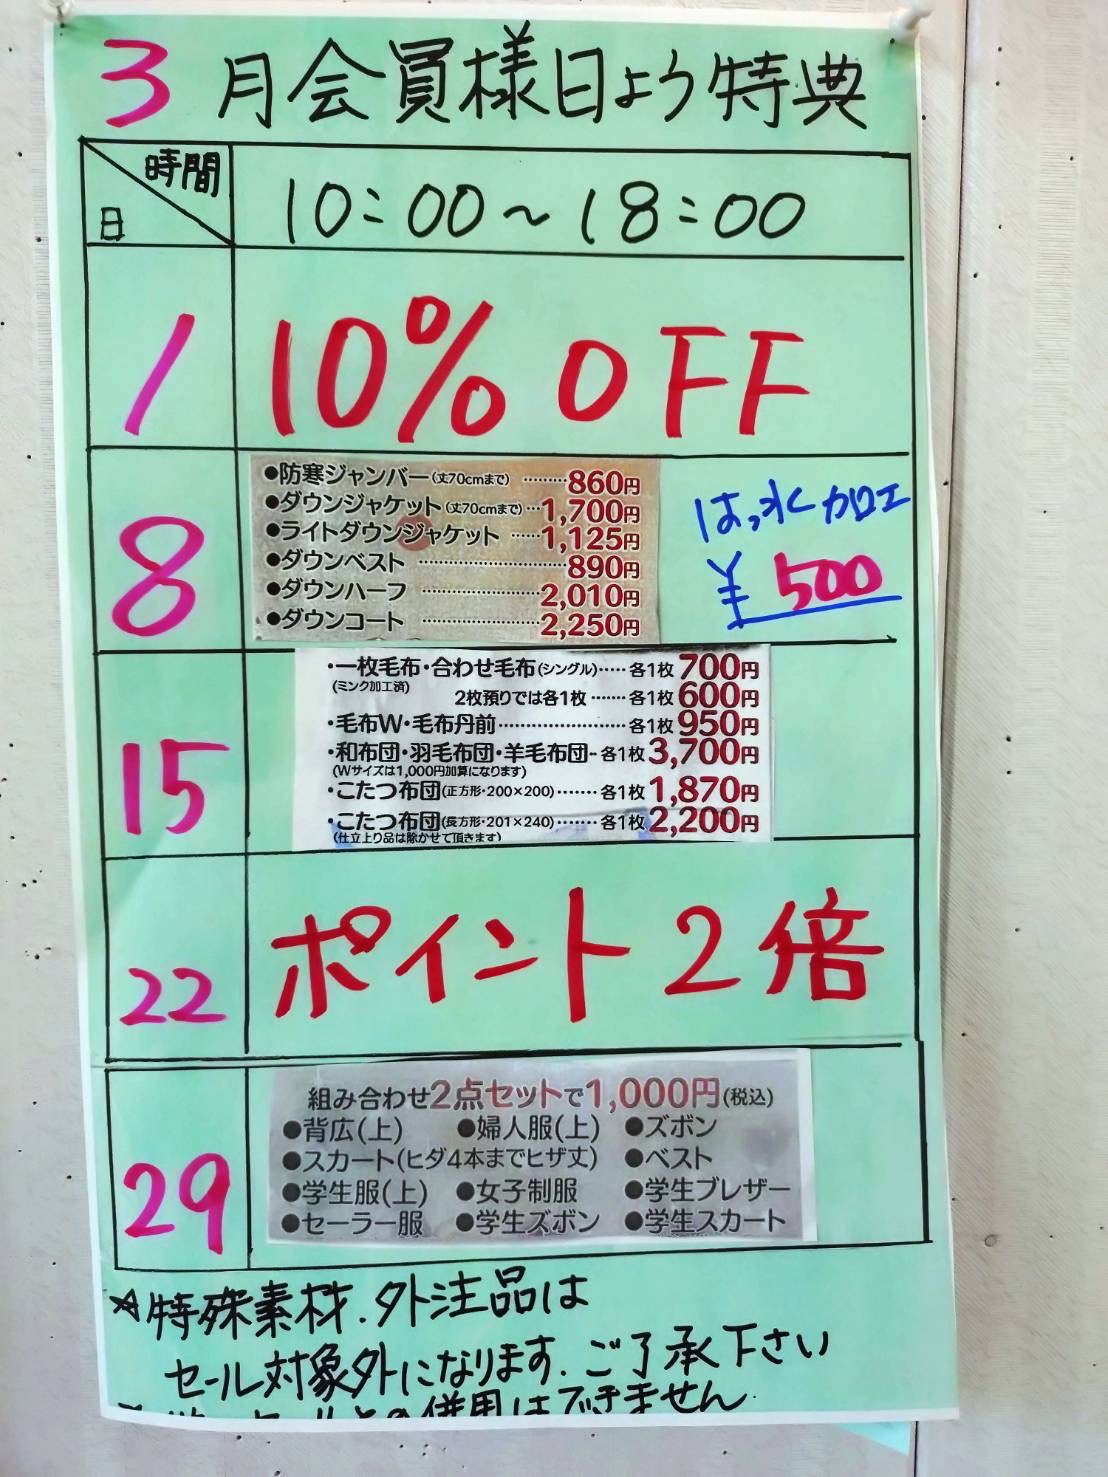 3月会員様日よう特典
時間
日
10:00〜18:00
1
10% OFF
8
●防寒ジャンバー(丈70cmまで)………860円
●ダウンジャケット(丈70cmまで)…1,700円
●ライトダウンジャケット……1,125円
●ダウンベスト……………………890円
●ダウンハーフ…………………2,010円
●ダウンコート…………………2,250円
はっ水カロエ
¥500
15
・一枚毛布・合わせ毛布(シングル)……各1枚700円
(ミンク加工済)
2枚預りでは各1枚……各1枚600円
・毛布W・毛布丹前……………………各1枚950円
・和布団・羽毛布団・羊毛布団…各1枚3,700円
(Wサイズは1,000円加算になります)
・こたつ布団(正方形・200×200)………各1枚1,870円
・こたつ布団(長方形・201×240)………各1枚2,200円
(仕立上り品は除かせて頂きます)
22
ポイント2倍
29
組み合わせ2点セットで1,000円(税込)
●背広(上) ●婦人服(上) ●ズボン
●スカート(ヒダ4本までヒザ丈) ●ベスト
●学生服(上) ●女子制服 ●学生ブレザー
●セーラー服 ●学生ズボン ●学生スカート
☆特殊素材.外注品は
セール対象外になります.ご了承下さい
セールとの併用はできません